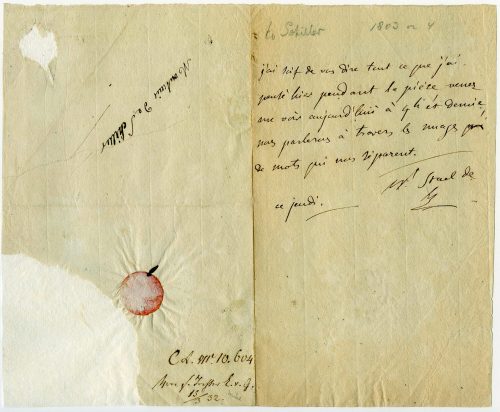 to Schiller 1803 or 4
Monsieur de Schiller
j'ai soif de vous dire tout ce que j'ai
pensé hier pendant la pièce venez
me voir aujourd'hui à 4 h et demie
nous parlerons à travers le nuage
de mots qui nous séparent.
Staël de
ce jeudi.
C.L. No 10.604
52.